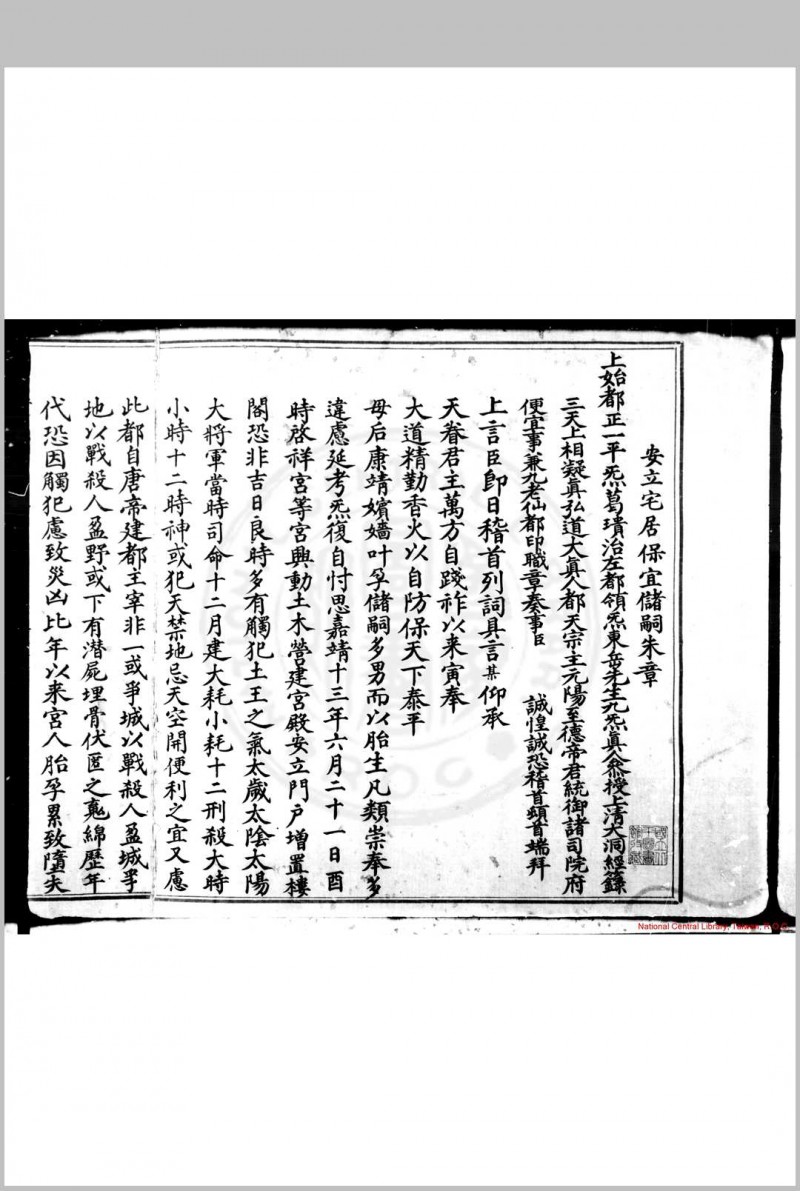 安立宅居保宜儲嗣朱章
上始都正一平炁葛璝治左都領炁東岳先生九炁真人叅授上清大洞經籙
三天上相凝真弘道大真人都天宗主元陽至德帝君統御諸司院府
便宜事兼九老仙都印職章奏事臣　誠惶誠恐稽首頓首端拜
上言臣即日稽首列詞具言某仰承
天眷君王萬方自踐祚以来寅奉
大道精勤香火以自防保天下泰平
母后康靖嬪嬙叶孕儲嗣多男而以胎生凡類崇奉多
違慮延考炁復自忖思嘉靖十三年六月二十一日酉
時啓祥宮等宮興動土木營建宮殿安立門户增置樓
閣恐非吉日良時多有觸犯土王之氣太歲太陰太陽
大將軍當時司命十二月建大耗小耗十二刑殺大時
小時十二時神或犯天禁地忌天空開便利之宜又慮
此都自唐帝建都主宰非一或爭城以戰殺人盈城爭
地以戰殺人盈野或下有潛屍埋骨伏匿之䰟綿歷年
代恐因觸犯慮致災凶比年以来宮人胎孕累致墮失
National Central Library, Taiwan, R.O.C